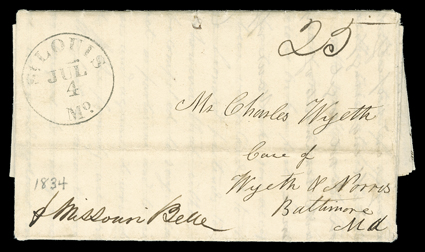 ST. LOUIS
JUL
4
Mo.
25
Mr Charles Wyeth
Care of
Wyeth & Norris
Baltimore
Md
1834
Missouri Belle